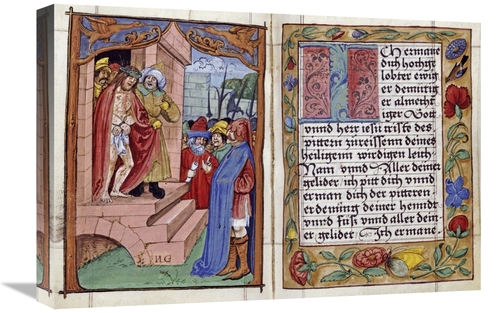 Ch ermane
dich hochge
lobter ewig
er demütig
er almecht
iger Gott
vnnd herr iesu criste des
pittern zureissenn deines
heiligenn wirdigen leich
Nam vnnd Aller deiner
gelider ich pitt dich vnnd
erman dich der pitteren
erdenung deiner henndt
vnnd füß vnnd aller dein
er gelider Ich ermane
HG